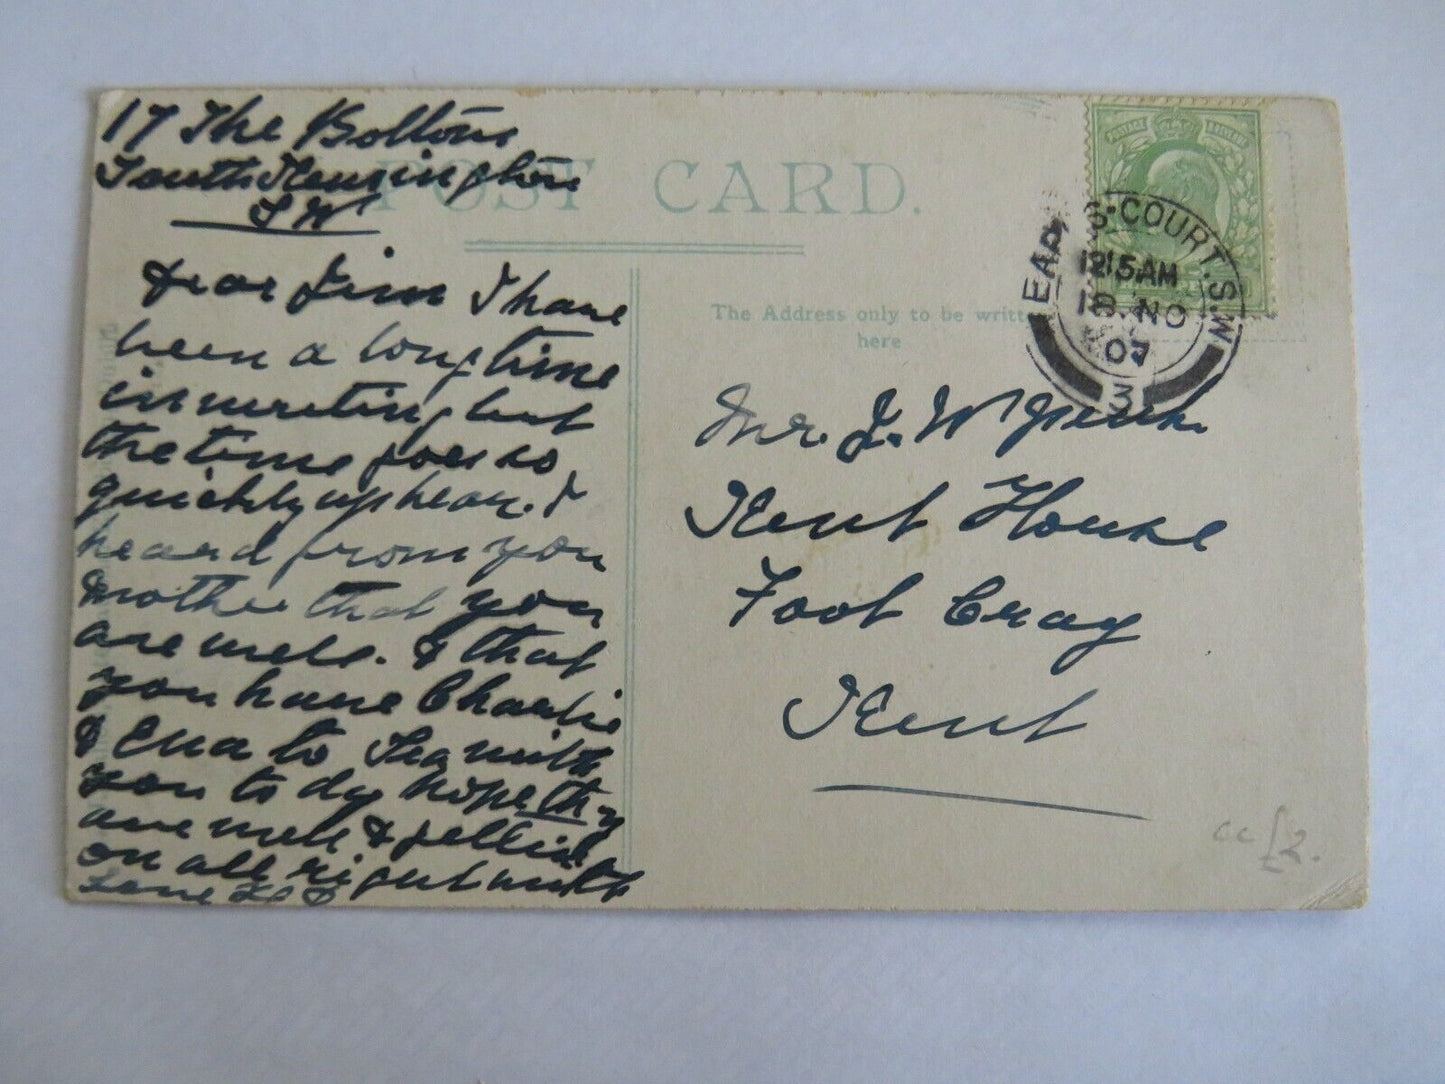 17 The Boltons
South Kensington
S W
Dear Jim I have
been a long time
in writing but
the time goes so
quickly up hear. I
heard from you
Mother that you
are well. & that
you have Charlie
& Ena to Tea with
you to dy hope thy
are well & getting
on all right with
Love
POST CARD.
The Address only to be writt
here
POSTAGE REVENUE
EARLS-COURT. S.W.
1215AM
18. NO
07
3
Mr. J. W
Kent House
Foot Cray
Kent
cc £2.